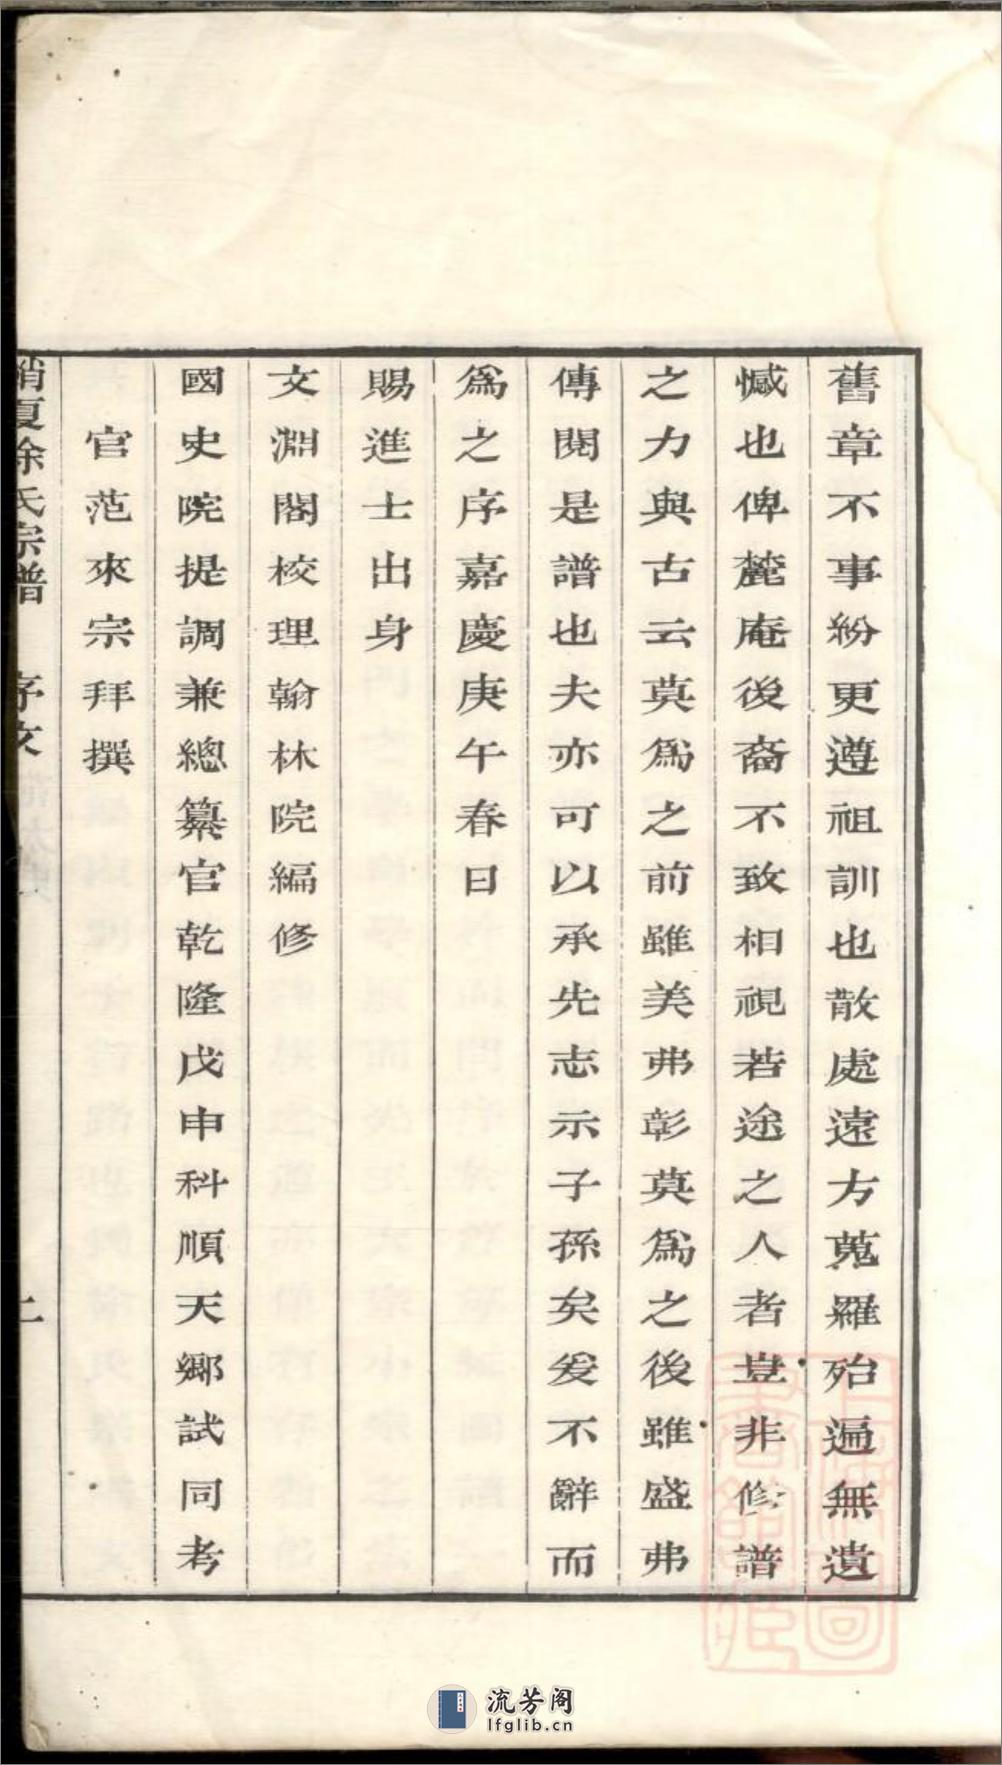 舊章不事紛更遵祖訓也散處遠方蒐羅殆遍無遺
憾也俾麓庵後裔不致相視若途之人者豈非修譜
之力與古云莫爲之前雖美弗彰莫爲之後雖盛弗
傳閱是譜也夫亦可以承先志示子孫矣爰不辭而
爲之序嘉慶庚午春日
賜進士出身
文淵閣校理翰林院編修
國史院提調兼總纂官乾隆戊申科順天鄉試同考
官范來宗拜撰
夏徐氏宗譜 序文
流芳阁
lfglib.cn